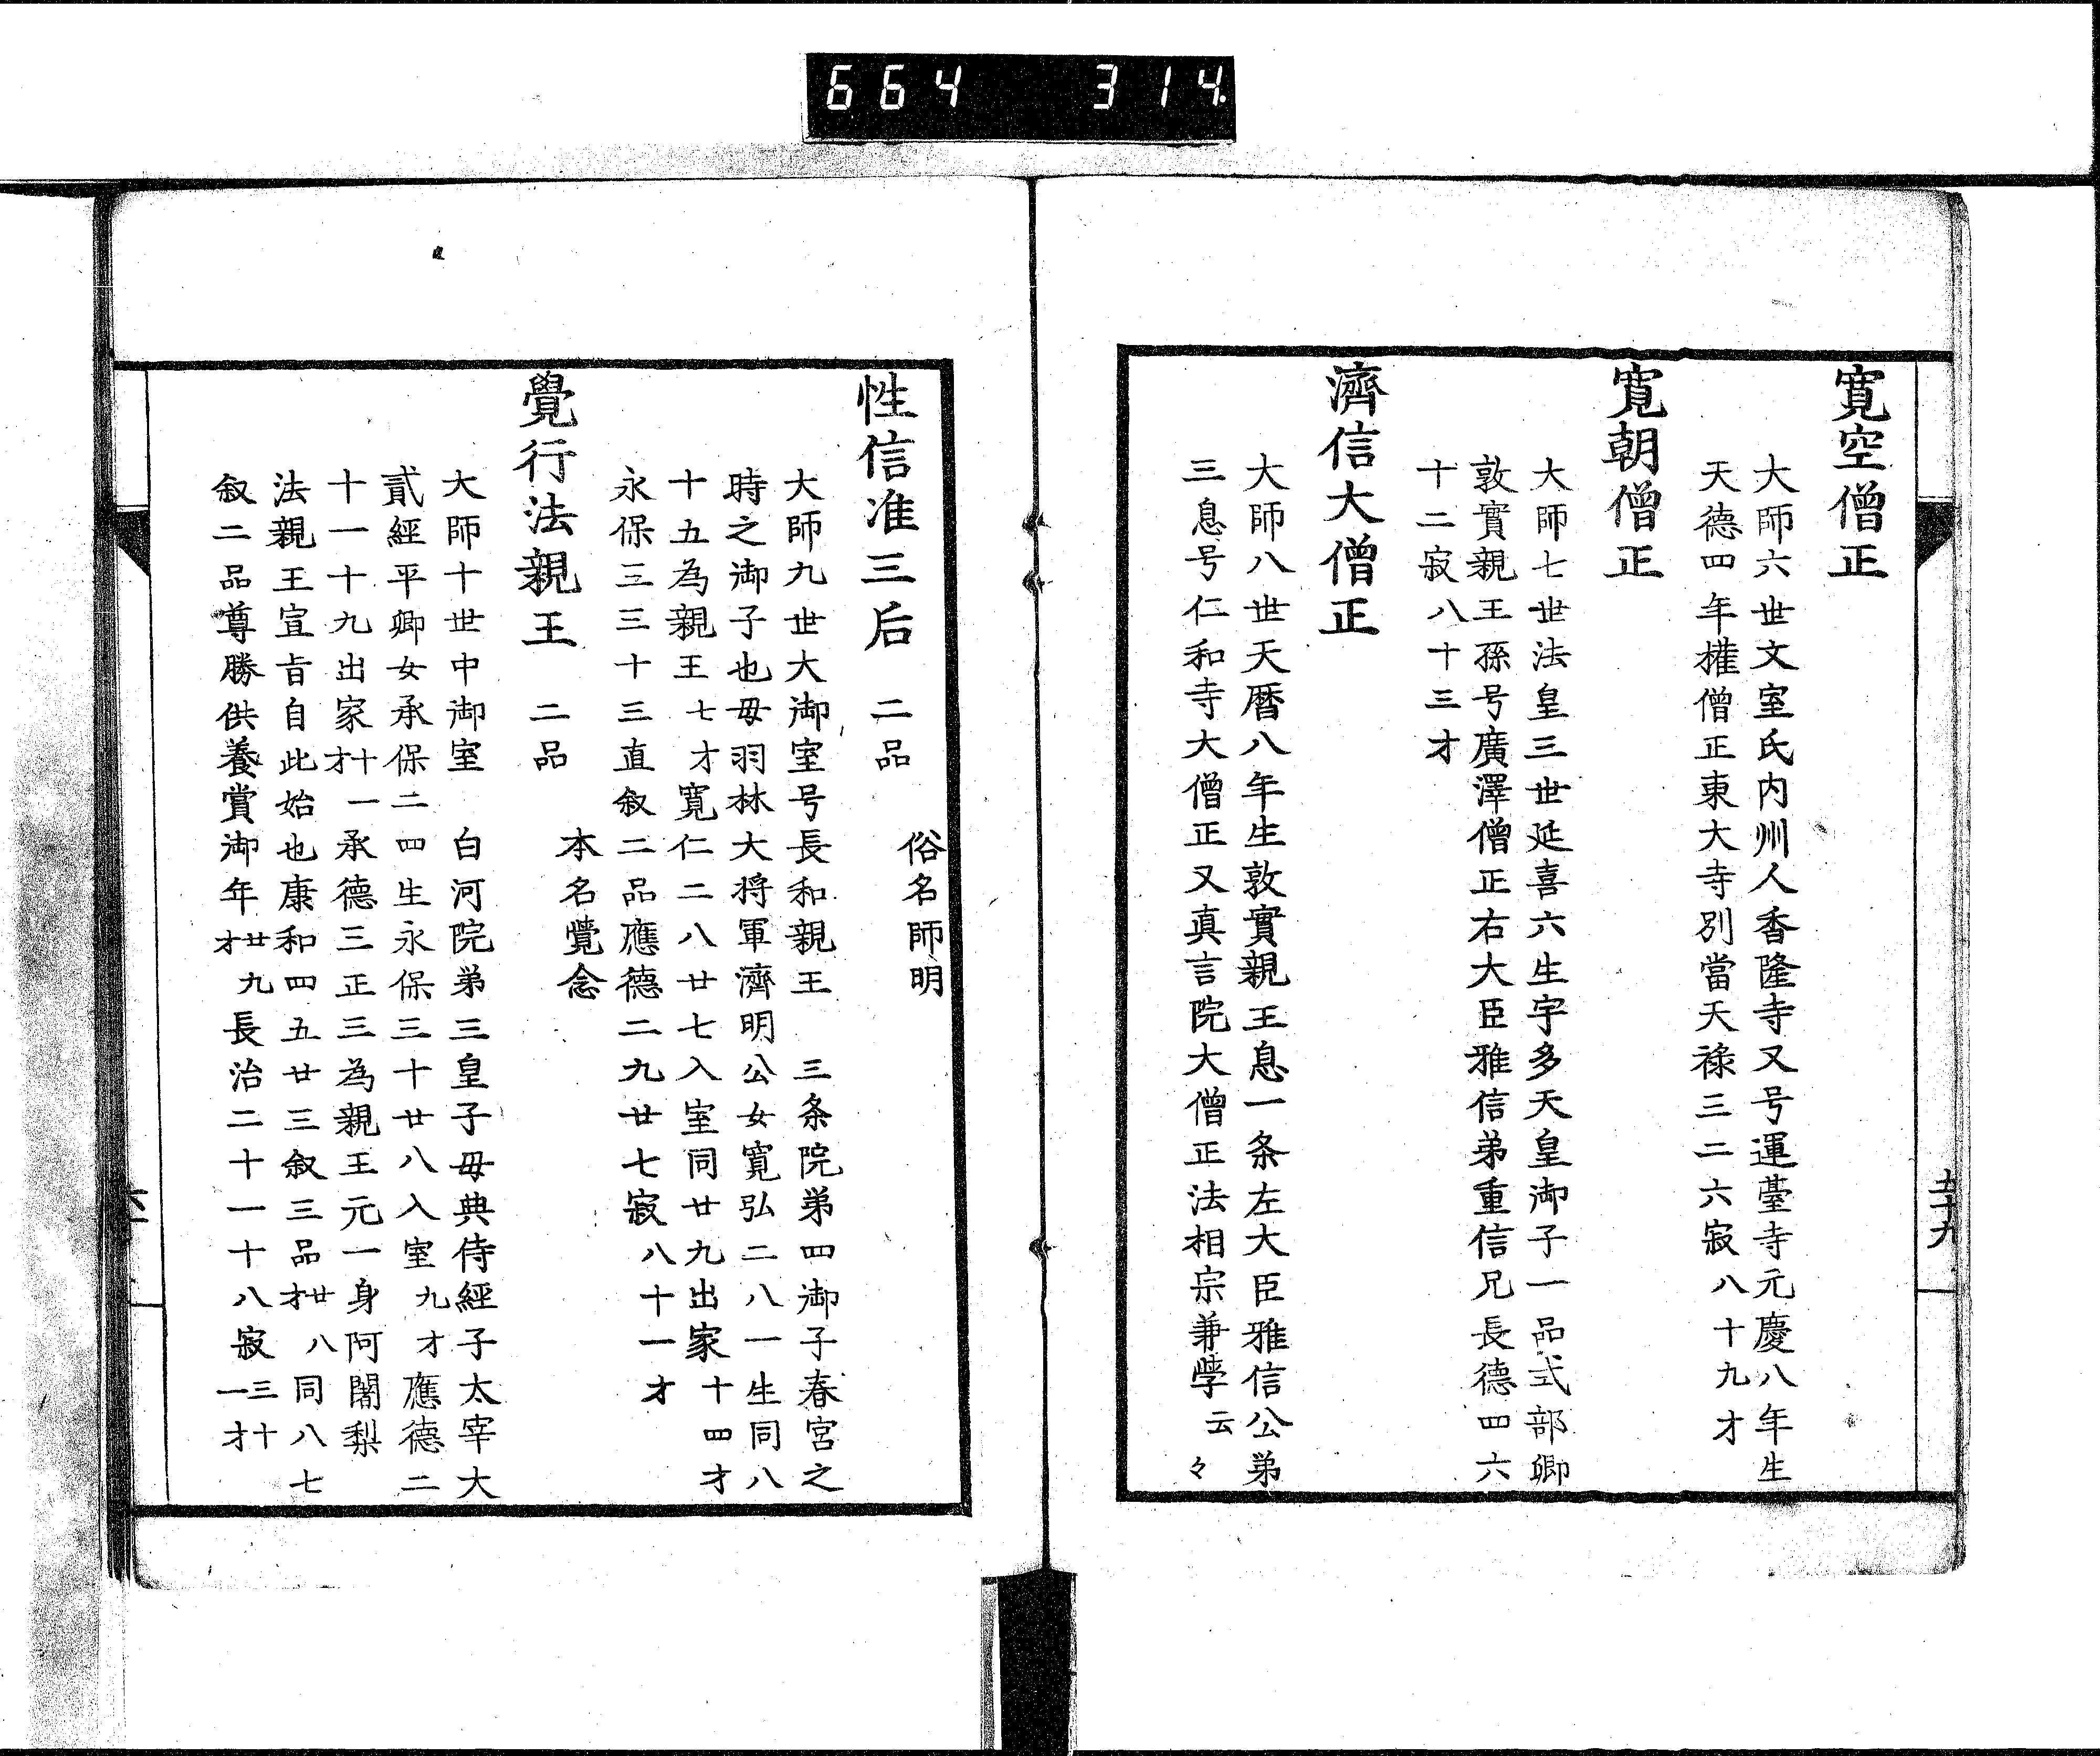 664 314
五十九
寛空僧正
大師六世文室氏内州人香隆寺又号運臺寺元慶八年生
天德四年権僧正東大寺別當天祿三二六寂八十九才
寛朝僧正
大師七世法皇三世延喜六生宇多天皇御子一品式部卿
敦實親王孫号廣澤僧正右大臣雅信弟重信兄長德四六
十二寂八十三才
濟信大僧正
大師八世天暦八年生敦實親王息一条左大臣雅信公弟
三息号仁和寺大僧正又真言院大僧正法相宗兼學云々
性信准三后 二品 俗名師明
大師九世大御室号長和親王 三条院弟四御子春宮之
時之御子也毋羽林大将軍濟明公女寛弘二八一生同八
十五為親王七才寛仁二八廿七入室同廿九出家十四才
永保三三十三直叙二品應德二九廿七寂八十一才
覺行法親王 二品 本名覺念
大師十世中御室 白河院弟三皇子毋典侍經子太宰大
貳經平卿女承保二四生永保三十廿八入室九才應德二
十一十九出家十一才承德三正三為親王元一身阿闍梨
法親王宣旨自此始也康和四五廿三叙三品廿八才同八七
叙二品尊勝供養賞御年廿九才長治二十一十八寂三十一才